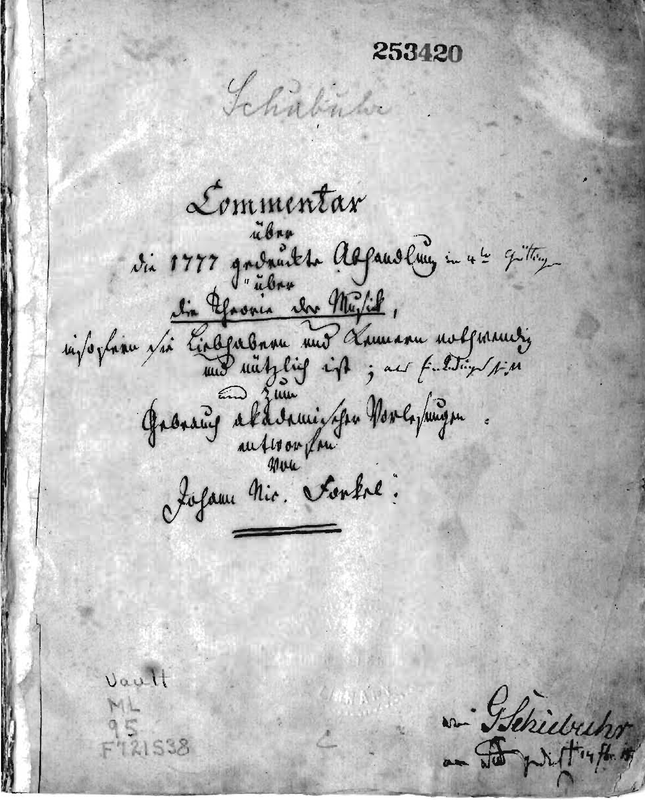 253420
Schubuhr
Commentar
über
die 1777 gedruckte Abhandlung in 4to Götting
über
die Theorie der Musik,
insofern sie Liebhabern und Kennern nothwendig
und nützlich ist; als
und zum
Gebrauch akademischer Vorlesungen.
entworfen
von
Johann Nic. Forkel.
Vault
ML
95
F721S38
von GSchubuhr